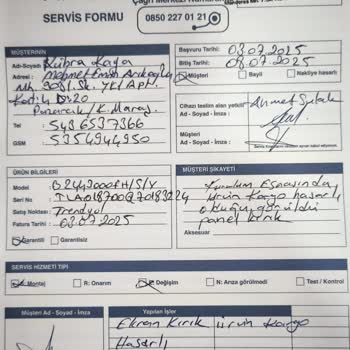 Çağrı Merkezi Numarası
SERVİS FORMU
0850 227 01 21
MÜŞTERİNİN
Ad-Soyadı : Kübra Kaya
Adresi : Mehmet Emin Arıkoğlu
Mh. 3051. Sk. YKL APT.
Kat:4 D:20
Pazarcık / K. Maraş
Tel : 543 653 7366
GSM : 5354944350
Başvuru Tarihi: 03.07.2025
Bitiş Tarihi: 08.07.2025
Müşteri Bayii Nakliye hasarlı
Cihazı teslim alan yetkili
Ad - Soyad - İmza : Ahmet
Müşteri
Ad - Soyad - İmza :
ÜRÜN BİLGİLERİ
Model :
Seri No :
Satış Noktası : Trendyol
Fatura Tarihi : 03.07.2025
Garantili Garantisiz
MÜŞTERİ ŞİKAYETİ
Kurulum Esnasında
ürün Kargo hasarlı
olduğu görüldü
panel kırık
Aksesuar :
SERVİS HİZMETİ TİPİ
Montaj R: Onarım Değişim N: Arıza görülmedi Test / Kontrol
Müşteri Ad - Soyad - İmza
Yapılan İşler
Ekran Kırık ürün Kargo
Hasarlı